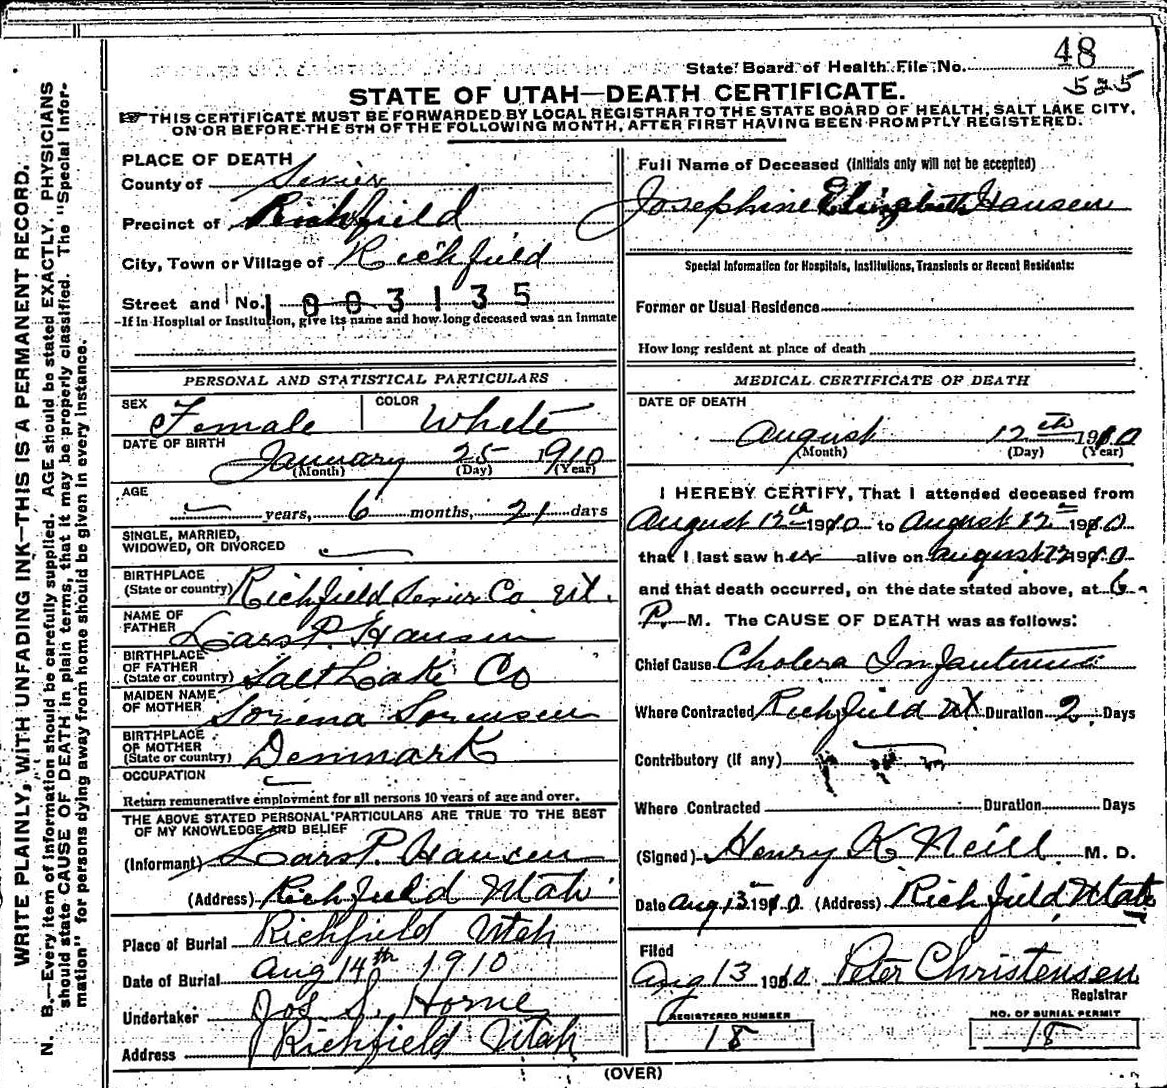 State Board of Health File No. 48
525
STATE OF UTAH—DEATH CERTIFICATE.
THIS CERTIFICATE MUST BE FORWARDED BY LOCAL REGISTRAR TO THE STATE BOARD OF HEALTH, SALT LAKE CITY,
ON OR BEFORE THE 5TH OF THE FOLLOWING MONTH, AFTER FIRST HAVING BEEN PROMPTLY REGISTERED.
WRITE PLAINLY, WITH UNFADING INK—THIS IS A PERMANENT RECORD.
N. B.—Every item of information should be carefully supplied. AGE should be stated EXACTLY. PHYSICIANS
should state CAUSE OF DEATH in plain terms, that it may be properly classified. The "Special Infor-
mation" for persons dying away from home should be given in every instance.
PLACE OF DEATH
County of Sevier
Precinct of Richfield
City, Town or Village of Richfield
Street and No. 1003135
If in Hospital or Institution, give its name and how long deceased was an Inmate
PERSONAL AND STATISTICAL PARTICULARS
SEX Female COLOR White
DATE OF BIRTH January 25 1910
(Month) (Day) (Year)
AGE
years, 6 months, 21 days
SINGLE, MARRIED,
WIDOWED, OR DIVORCED
BIRTHPLACE
(State or country) Richfield Sevier Co Ut.
NAME OF
FATHER Lars P. Hansen
BIRTHPLACE
OF FATHER
(State or country) Salt Lake Co
MAIDEN NAME
OF MOTHER Sorena Sorensen
BIRTHPLACE
OF MOTHER
(State or country) Denmark
OCCUPATION
Return remunerative employment for all persons 10 years of age and over.
THE ABOVE STATED PERSONAL PARTICULARS ARE TRUE TO THE BEST
OF MY KNOWLEDGE AND BELIEF
(Informant) Lars P. Hansen
(Address) Richfield Utah
Place of Burial Richfield Utah
Date of Burial Aug 14th 1910
Undertaker Jos S. Horne
Address Richfield Utah
Full Name of Deceased (Initials only will not be accepted)
Josephine Elizabeth Hansen
Special Information for Hospitals, Institutions, Transients or Recent Residents:
Former or Usual Residence
How long resident at place of death
MEDICAL CERTIFICATE OF DEATH
DATE OF DEATH
August 12th 1910
(Month) (Day) (Year)
I HEREBY CERTIFY, That I attended deceased from
August 12th 1910 to August 12th 1910
that I last saw her alive on August 12 1910
and that death occurred, on the date stated above, at 6
P. M. The CAUSE OF DEATH was as follows:
Chief Cause Cholera Infantum
Where Contracted Richfield Ut Duration 2 Days
Contributory (if any)
Where Contracted Duration Days
(Signed) Henry K Neill M. D.
Date Aug 13 1910 (Address) Richfield, Utah
Filed
Aug 13 1910 Peter Christensen
Registrar
REGISTERED NUMBER
18
NO. OF BURIAL PERMIT
18
(OVER)